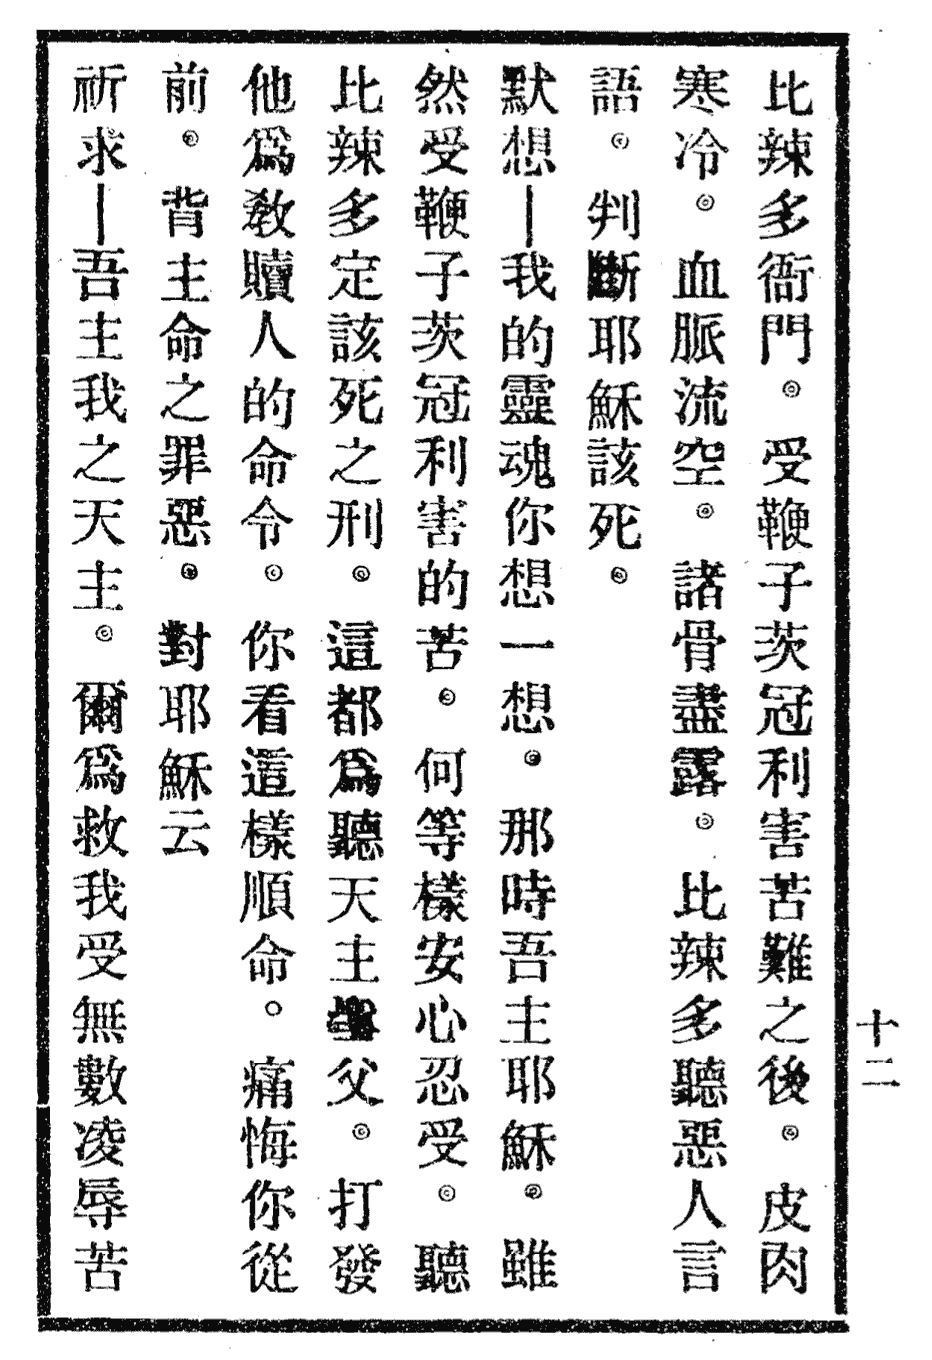 十二
比辣多衙門。受鞭子茨冠利害苦難之後。皮肉
寒冷。血脈流空。諸骨盡露。比辣多聽惡人言
語。判斷耶穌該死。
默想—我的靈魂你想一想。那時吾主耶穌。雖
然受鞭子茨冠利害的苦。何等樣安心忍受。聽
比辣多定該死之刑。這都爲聽天主聖父。打發
他爲敎贖人的命令。你看這樣順命。痛悔你從
前。背主命之罪惡。對耶穌云
祈求—吾主我之天主。爾爲救我受無數凌辱苦